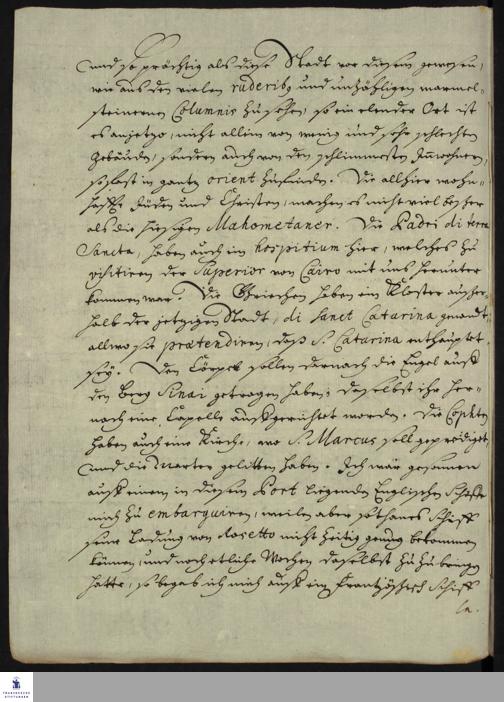 und so prächtig als diese Stadt vor diesem gewesen,
wie aus den vielen ruderibus und unzähligen marmel-
steinernen Columnis zu sehen, so ein elender Ort ist
es anjetzo, nicht allein von wenig und sehr schlechten
Gebäuden, sondern auch von den schlimmesten Innwohnern,
so fast in gantz orient zufinden. Die allhier wohn-
haffte Jüden und Christen, machen es nicht viel besser
als die hiesigen Mahometaner. Die Padri di terra
Sancta, haben auch ein hospitium hier, welches zu
visitiren der Superior von Cairo mit uns herunter
kommen war. Die Griechen haben ein Kloster ausser-
halb der jetzigen Stadt, di Sanct Catarina genandt,
allwo sie prætendiren, daß S. Catarina enthauptet
sey. Den Cörper sollen darnach die Engel auff
den Berg Sinai getragen haben, daselbst ihr her-
nach eine Capelle auffgerichtet worden. Die Cophten
haben auch eine Kirche, wo S. Marcus soll geprediget,
und die Marter gelitten haben. Ich war gesonnen
auff einem in diesem Port liegenden Englischen Schiffe
mich zu embarquiren, weilen aber sothanes Schiff
seine Ladung von Rosetto nicht zeitig genug bekommen
können, und noch etliche Wochen daselbst zuzubringen
hatte, so begab ich mich auff ein Frantzösisch Schiff
FRANCKESCHE
STIFTUNGEN